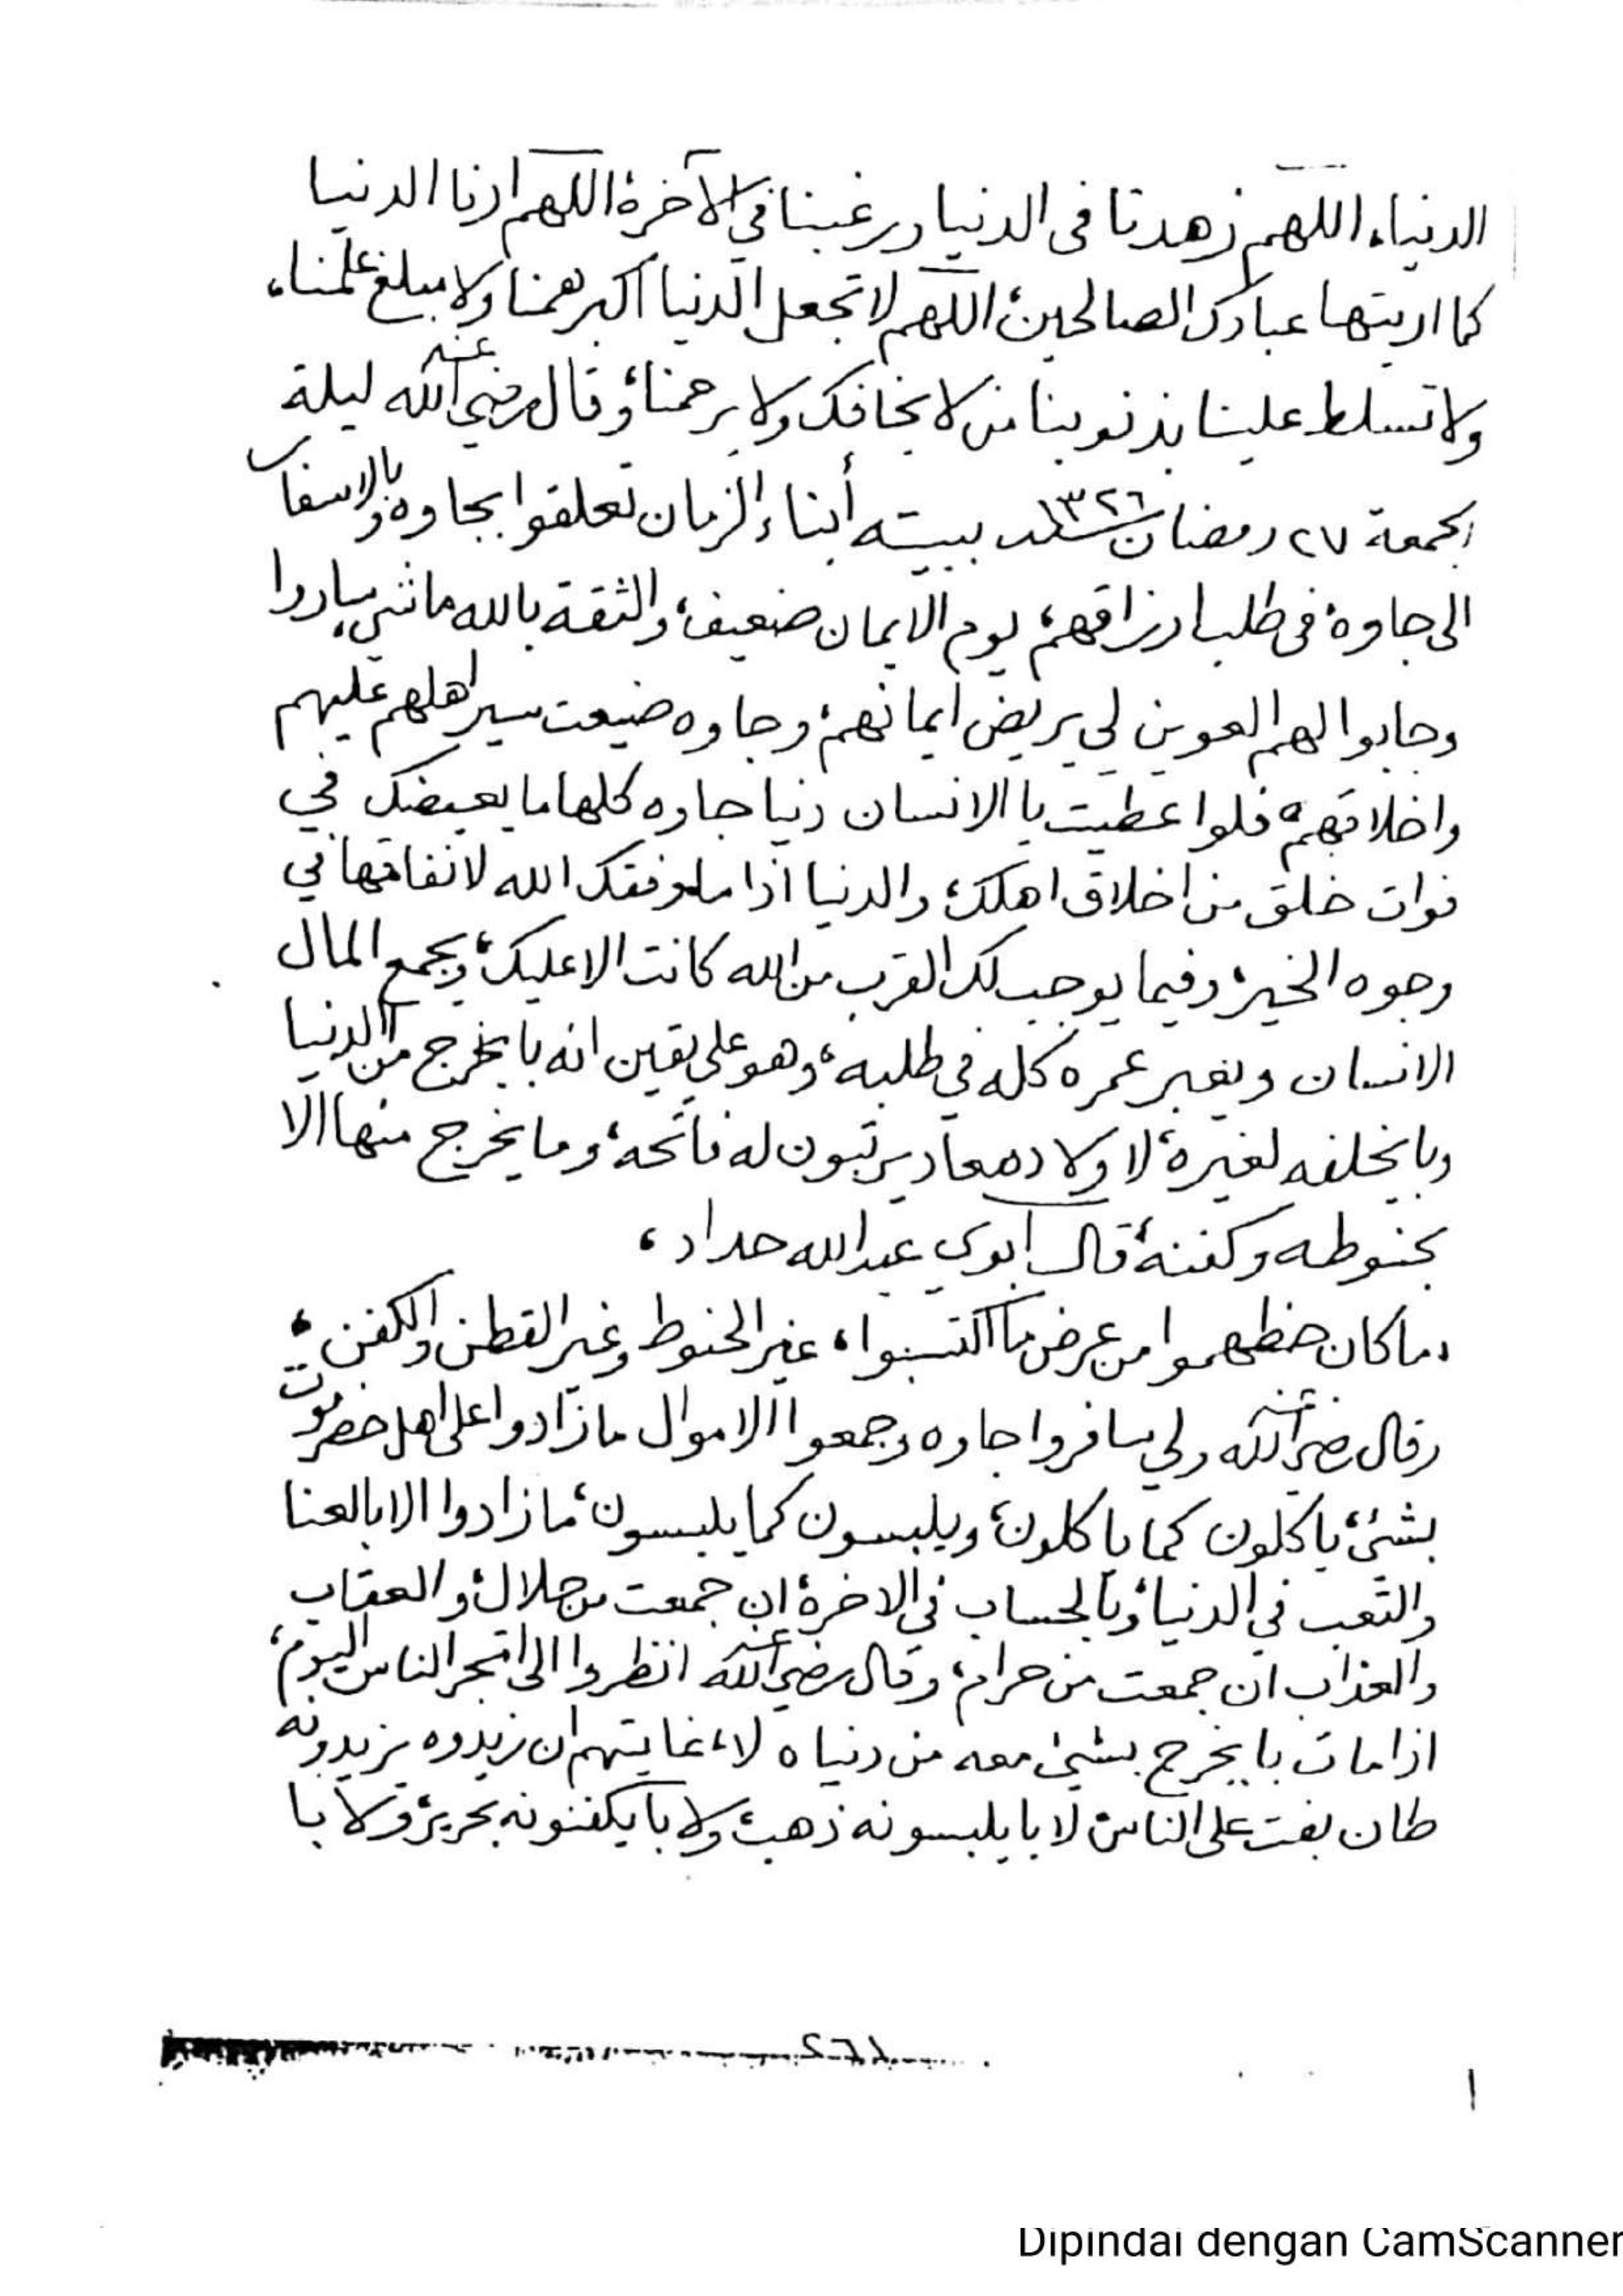 الدنيا، اللهم زهدنا فى الدنيا ورغبنا في الآخرة، اللهم ارنا الدنيا
كما اريتها عبادك الصالحين، اللهم لا تجعل الدنيا اكبر همنا ولا مبلغ علمنا،
ولا تسلط علينا بذنوبنا من لا يخافك ولا يرحمنا، وقال رضي الله عنه ليلة
الجمعة ٢٧ رمضان سنة ١٣٢٦ ببيته أبناء الزمان تعلقوا بجاوه وبالاسفار
الى جاوة فى طلب ارزاقهم، يوم الايمان ضعيف، والثقة بالله ماشي بادروا
وجابوا لهم العوين لي يريض ايمانهم، وجاوه ضيعت سير اهلهم عليهم
واخلاقهم، فلو اعطيت يا الانسان دنيا جاوه كلها ما يعيضك في
فوات خلق من اخلاق اهلك، والدنيا اذا ما وفقك الله لانفاقها في
وجوه الخير، وفيما يوجب لك القرب من الله كانت الا عليك، ويجمع المال
الانسان ويغبر عمره كله في طلبه، وهو على يقين انه با يخرج من الدنيا
وبا يخلفه لغيره، لاولاد معاد يرتبون له فاتحه، وما يخرج منها الا
بحنوطه وكفنه، قال ابوي عبدالله حداد،
ما كان حظهموا من عرض ما اكتسبوا، غير الحنوط وغير القطن والكفن،
وقال رضي الله عنه ولي سافروا جاوه وجمعوا الاموال ما زادوا على اهل حضرموت
بشئ، ياكلون كما ياكلون، ويلبسون كما يلبسون، ما زادوا الا بالعنا
والتعب في الدنيا، وبالحساب في الاخرة، ان جمعت من حلال، والعقاب
والعذاب ان جمعت من حرام، وقال رضي الله عنه انظروا الى اتجر الناس اليوم،
اذا مات با يخرج بشئ معه من دنياه لا، غايتهم ان زيدوه يزيدونه
طان بفت على الناس لا با يلبسونه ذهب، ولا با يكفنونه بحرير، ولا با
Dipindai dengan CamScanner